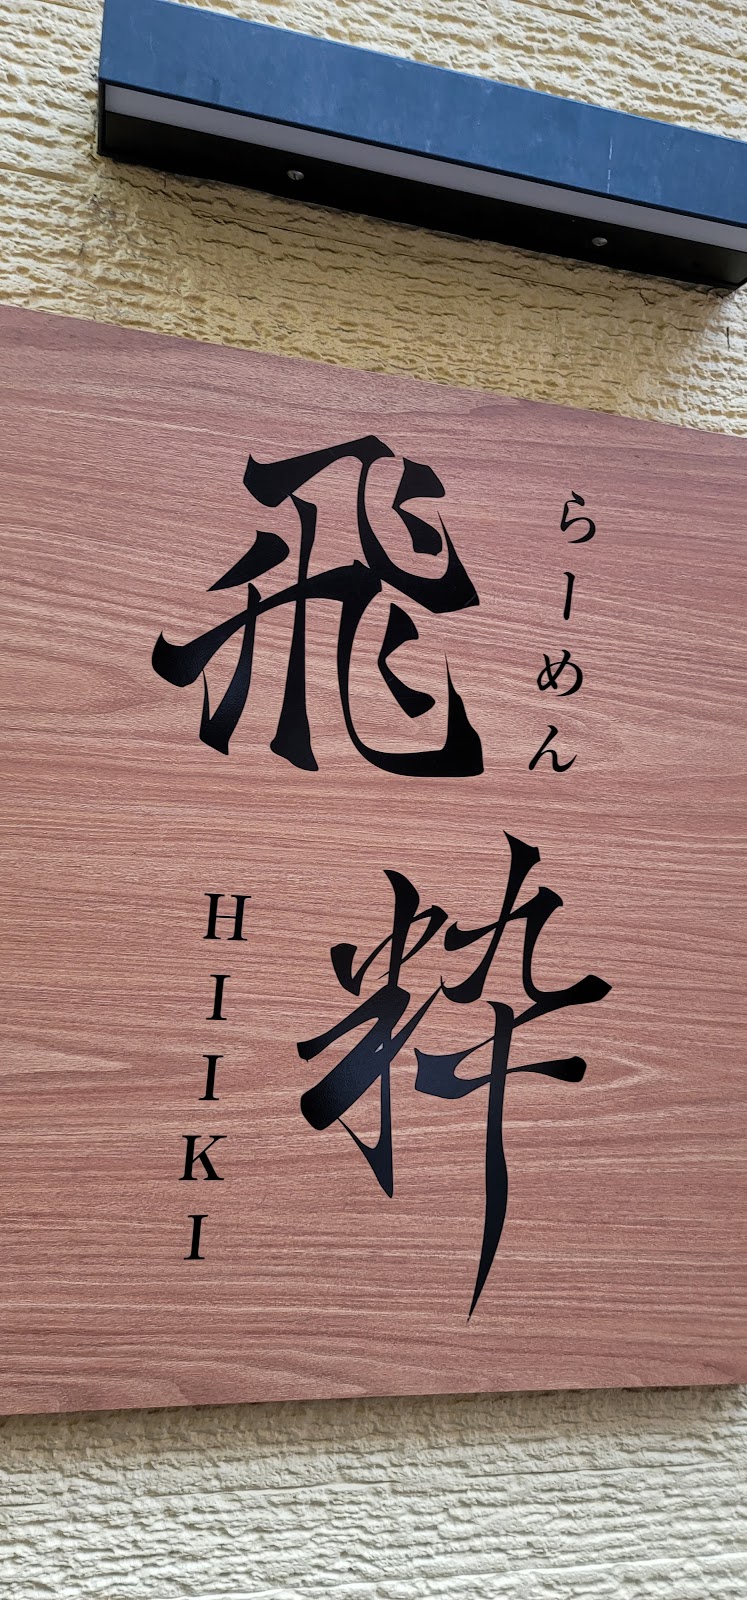 らーめん
飛粋
HIIKI